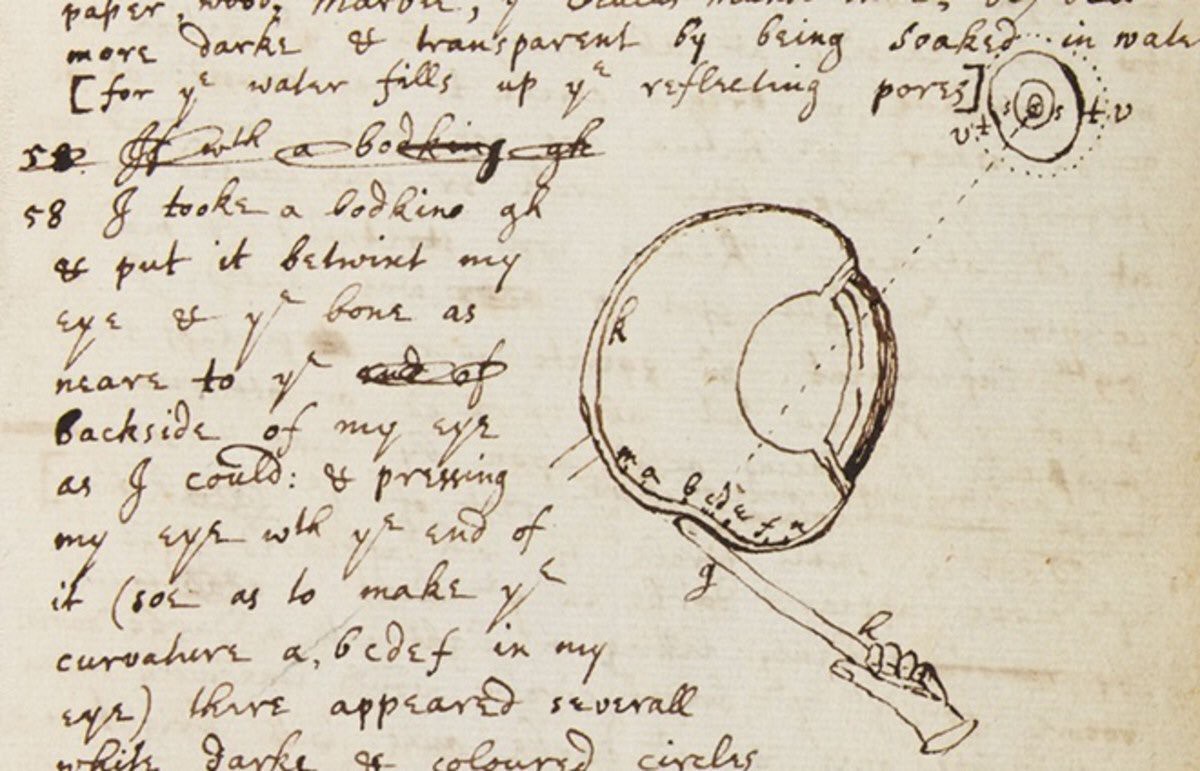 more darke & transparent by being soaked in wate
[for yᵉ water fills up yᵉ reflecting pores]
58 If wᵗʰ a bodking gh
58 I tooke a bodkine gh
& put it betwixt my
eye & yᵉ bone as
neare to yᵉ end of
backside of my eye
as I could: & pressing
my eye wᵗʰ yᵉ end of
it (soe as to make yᵉ
curvature a, bcdef in my
eye) there appeared severall
white darke & coloured circles
s s
v t t v
k
m a b c d e f n
g
h